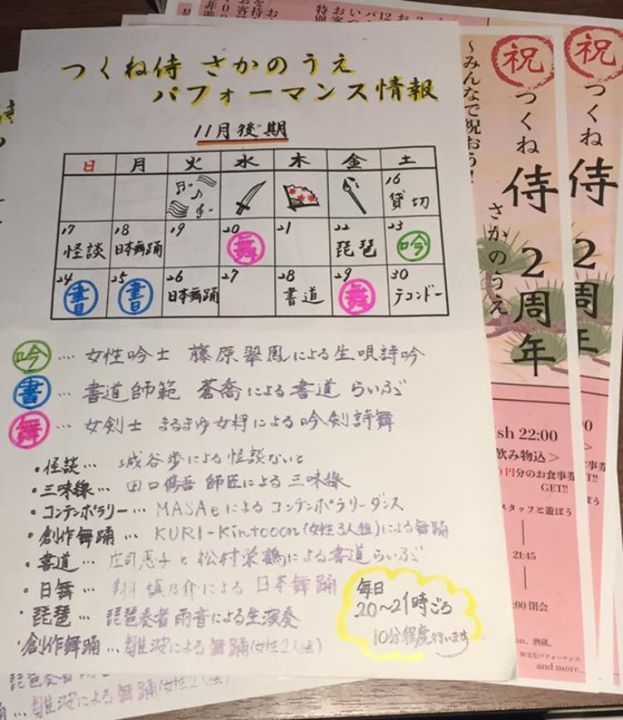 つくね侍 さかのうえ
パフォーマンス情報
11月後期
日 月 火 水 木 金 土
16 貸切
17 怪談 18 日本舞踊 19 20 舞 21 22 琵琶 23 吟
24 書 25 書 26 日本舞踊 27 28 書道 29 舞 30 テコンドー
吟 … 女性吟士 藤原翠鳳による生唄詩吟
書 … 書道師範 蒼喬による書道らいぶ
舞 … 女剣士 まるまゆ女将による吟剣詩舞
・怪談… 城谷歩による怪談ないと
・三味線… 田口 師匠による三味線
・コンテンポラリー… MASAeによるコンテンポラリーダンス
・創作舞踊… KURI-Kintooon(女性3人組)による舞踊
・書道… 庄司恵子と松村栄鶴による書道らいぶ
・日舞… 慎乃介による日本舞踊
・琵琶… 琵琶奏者雨音による生演奏
・創作舞踊… 難波による舞踊(女性2人組)
毎日
20〜21時ごろ
10分程度行います
琵琶奏者
難波による舞踊(女性2人組)
祝
つくね侍 2周年
さかのうえ
〜みんなで祝おう！
sh 22:00
飲み物込＞
円分のお食事券
GET!!
スタッフと遊ぼう
21:45
:00 閉会
酒蔵、
and more...
祝
つくね侍 2周年